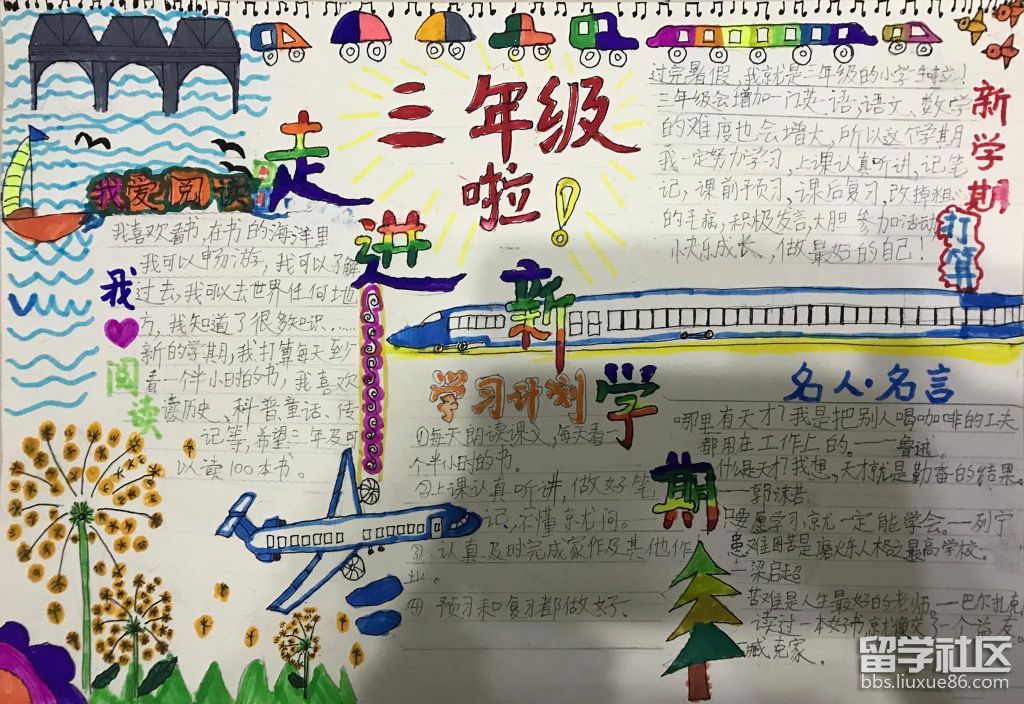 三年级
啦!
走进新学期
我爱阅读
我喜欢看书,在书的海洋里
我可以畅游,我可以了解
过去、我可以去世界任何地
方,我知道了很多知识……
新的学期,我打算每天至少
看一个半小时的书,我喜欢
读历史、科普童话、传
记等,希望三年级可
以读100本书。
我
阅
读
新学期
打算
过完暑假,我就是三年级的小学生啦!
三年级会增加一门英语,语文、数学
的难度也会增大,所以这个学期
我一定努力学习,上课认真听讲,记笔
记,课前预习,课后复习,改掉粗心
的毛病,积极发言,大胆参加活动
快乐成长,做最好的自己!
学习计划
①每天朗读课文,每天看一
个半小时的书。
②上课认真听讲,做好笔
记、不懂就问。
③认真及时完成家作及其他作
业。
④预习和复习都做好、
名人·名言
哪里有天才?我是把别人喝咖啡的工夫
都用在工作上的。——鲁迅
什么是天才?我想,天才就是勤奋的结果。
——郭沫若。
只要愿学习,就一定能学会。——列宁
患难困苦是磨炼人格之最高学校。
——梁启超
苦难是人生最好的老师。——巴尔扎克
读过一本好书,就像交了一个益友
——臧克家。
留学社区
bbs.liuxue86.com